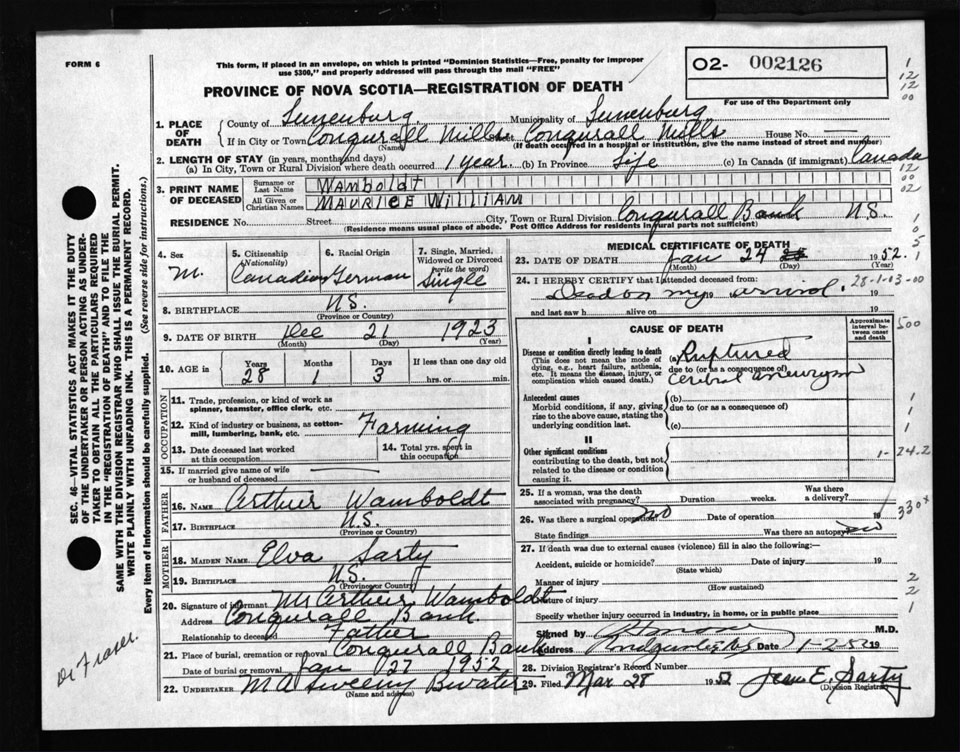 FORM 6
This form, if placed in an envelope, on which is printed "Dominion Statistics—Free, penalty for improper
use $300," and properly addressed will pass through the mail "FREE"
O2- 002126
For use of the Department only
PROVINCE OF NOVA SCOTIA—REGISTRATION OF DEATH
1. PLACE OF DEATH
County of Lunenburg Municipality of Lunenburg
If in City or Town Conqurall Mills Conqurall Mills House No. —
(Name) (If death occurred in a hospital or institution, give the name instead of street and number)
2. LENGTH OF STAY (in years, months and days)
(a) In City, Town or Rural Division where death occurred 1 year (b) In Province Life (c) In Canada (if immigrant) Canada
3. PRINT NAME OF DECEASED
Surname or Last Name WAMBOLDT
All Given or Christian Names MAURICE WILLIAM
RESIDENCE No. Street City, Town or Rural Division Conqurall Bank N.S.
(Residence means usual place of abode. Post Office Address for residents in rural parts not sufficient)
4. Sex M.
5. Citizenship (Nationality) Canadian
6. Racial Origin German
7. Single, Married, Widowed or Divorced (write the word) Single
8. BIRTHPLACE N.S.
(Province or Country)
9. DATE OF BIRTH Dec 21 1923
(Month) (Day) (Year)
10. AGE in Years 28 Months 1 Days 3 If less than one day old hrs. or min.
OCCUPATION
11. Trade, profession, or kind of work as spinner, teamster, office clerk, etc.
12. Kind of industry or business, as cotton-mill, lumbering, bank, etc. Farming
13. Date deceased last worked at this occupation
14. Total yrs. spent in this occupation
15. If married give name of wife or husband of deceased —
FATHER
16. NAME Arthur Wamboldt
17. BIRTHPLACE N.S.
(Province or Country)
MOTHER
18. MAIDEN NAME Elva Sarty
19. BIRTHPLACE N.S.
(Province or Country)
20. Signature of informant Mr Arthur Wamboldt
Address Conqurall Bank.
Relationship to deceased Father
21. Place of burial, cremation or removal Conqurall Bank
Date of burial or removal Jan 27 1952
22. UNDERTAKER M A Sweeny Bwater
(Name and address)
MEDICAL CERTIFICATE OF DEATH
23. DATE OF DEATH Jan 24 1952.
(Month) (Day) (Year)
24. I HEREBY CERTIFY that I attended deceased from 28-1-03-00
Dead on my 19 arrival. 19
and last saw h alive on 19
CAUSE OF DEATH
Approximate interval between onset and death
I
Disease or condition directly leading to death
(This does not mean the mode of dying, e.g., heart failure, asthenia, etc. It means the disease, injury, or complication which caused death.)
(a) Ruptured
due to (or as a consequence of)
Cerebral aneurysm
Antecedent causes
Morbid conditions, if any, giving rise to the above cause, stating the underlying condition last.
(b)
due to (or as a consequence of)
(c)
II
Other significant conditions
contributing to the death, but not related to the disease or condition causing it.
1-24-2
25. If a woman, was the death associated with pregnancy? Duration weeks. Was there a delivery?
26. Was there a surgical operation? no Date of operation 19
State findings Was there an autopsy? no
27. If death was due to external causes (violence) fill in also the following:—
Accident, suicide or homicide? Date of injury 19
(State which)
Manner of injury
(How sustained)
Nature of injury
Specify whether injury occurred in industry, in home, or in public place
Signed by M.D.
Address Date 1-2-52 19
28. Division Registrar's Record Number
29. Filed Mar 28 1952 E. Sarty
(Division Registrar)
SEC. 46—VITAL STATISTICS ACT MAKES IT THE DUTY
OF THE UNDERTAKER OR PERSON ACTING AS UNDER-
TAKER TO OBTAIN ALL THE PARTICULARS REQUIRED
IN THE "REGISTRATION OF DEATH" AND TO FILE THE
SAME WITH THE DIVISION REGISTRAR WHO SHALL ISSUE THE BURIAL PERMIT.
WRITE PLAINLY WITH UNFADING INK. THIS IS A PERMANENT RECORD.
Every item of Information should be carefully supplied. (See reverse side for instructions.)
Dr Fraser.
1
12
12
00
12
00
02
1
0
5
1
500
1
1
1
330x
2
2
1